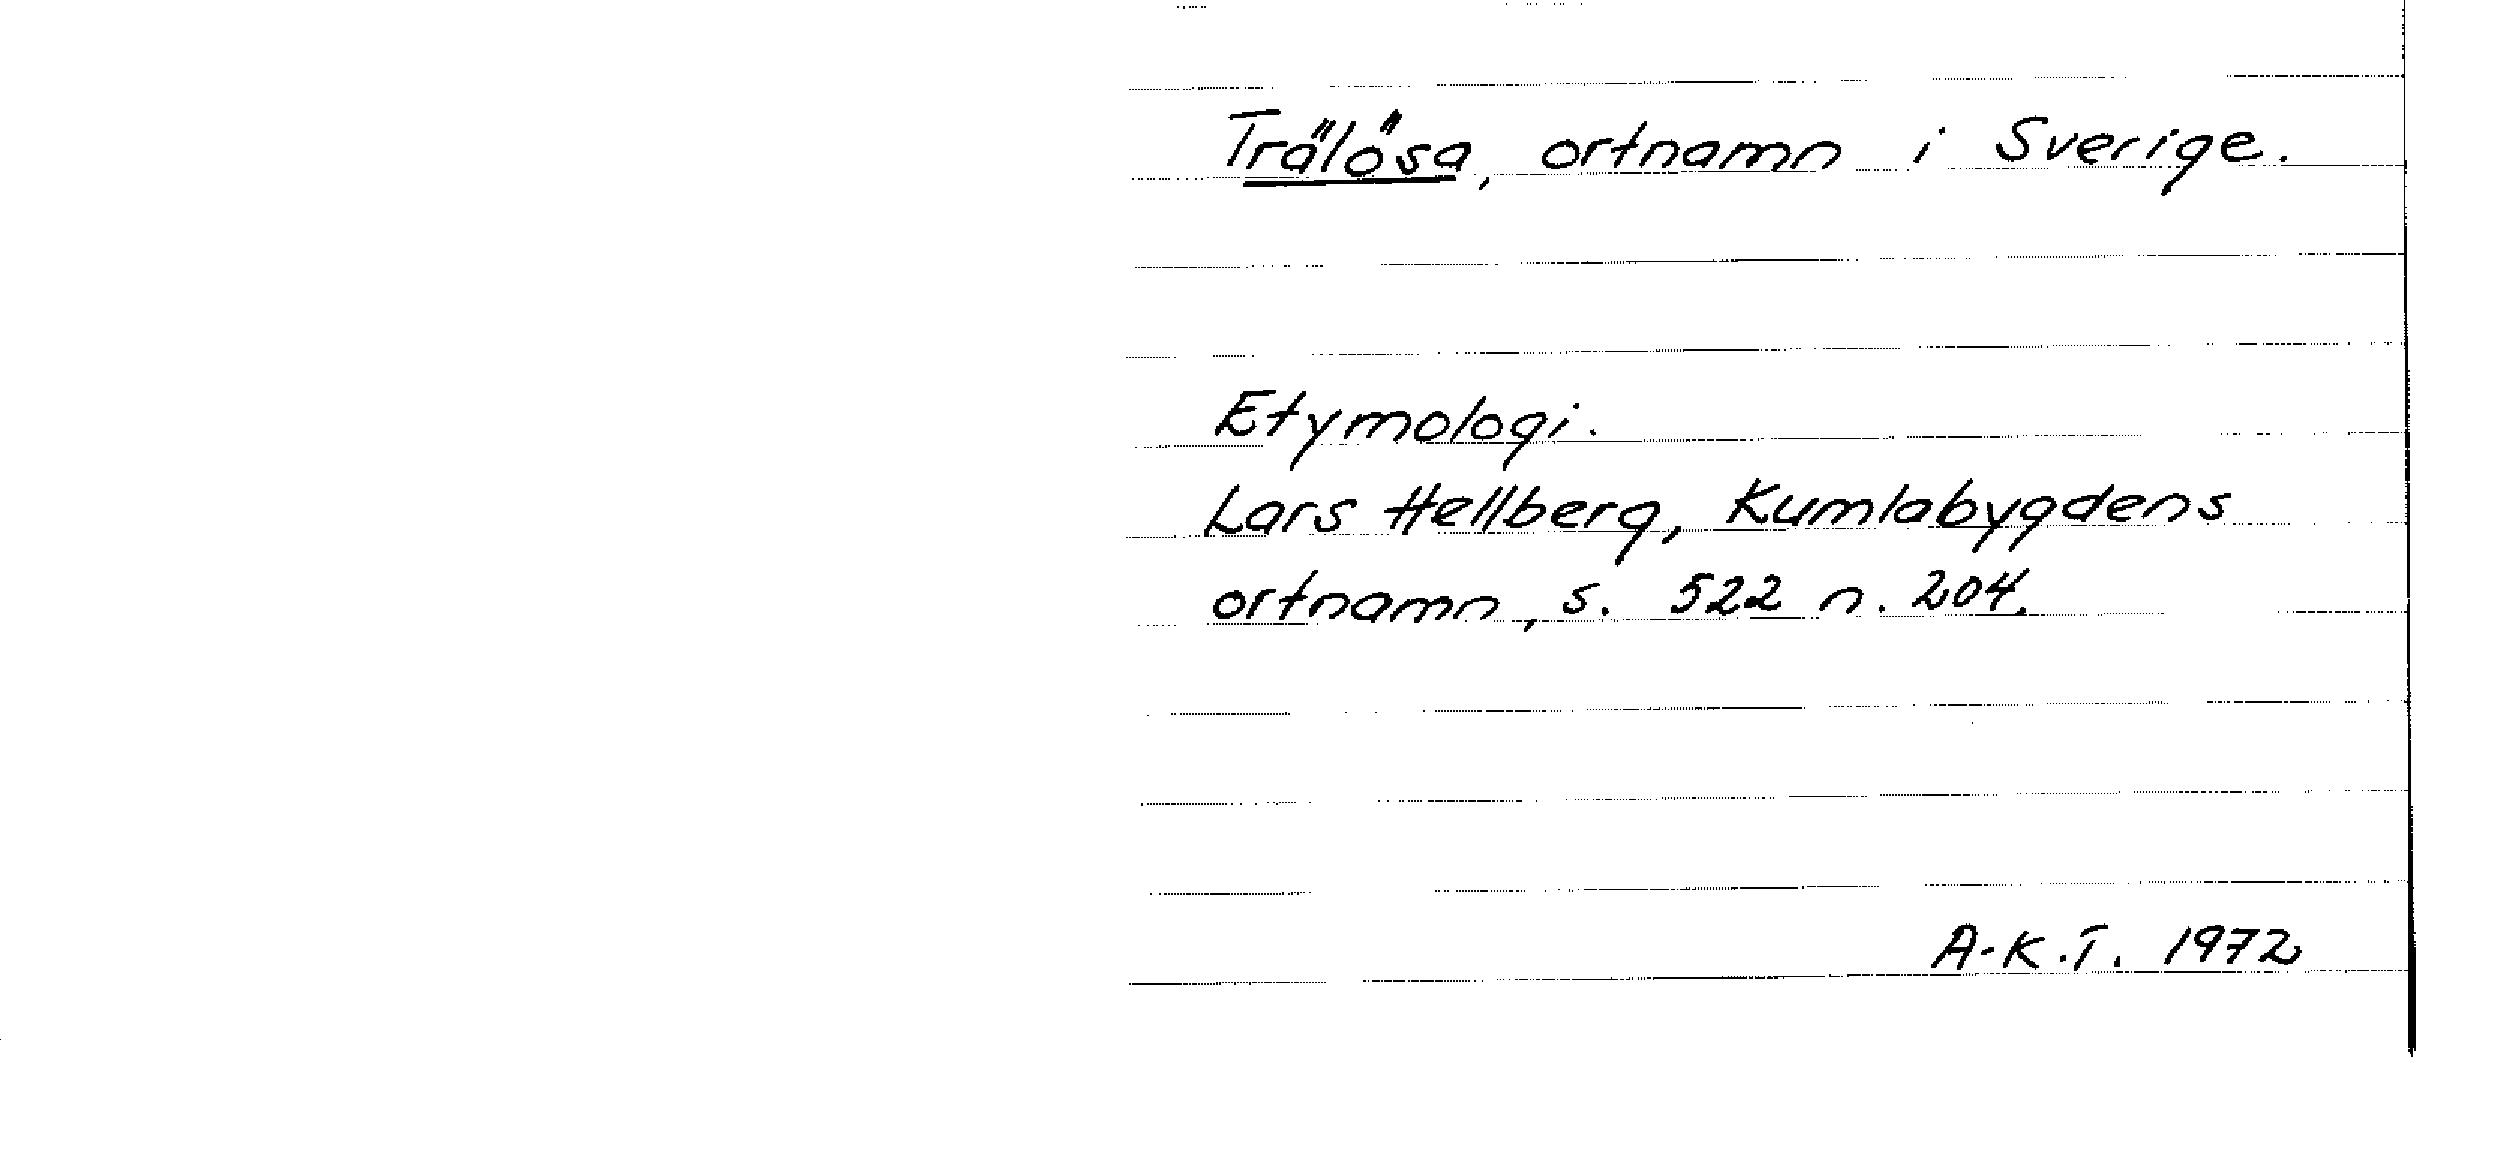 Trälösa, ortnamn i Sverige.
Etymologi.
Lars Hellberg, Kumlabygdens
ortnamn, s. 522 n. 204.
A-K.T. 1972